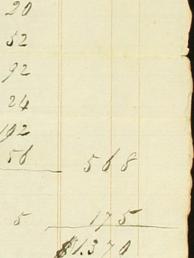 20
52
92
24
102
56 568
5 175
$1.370